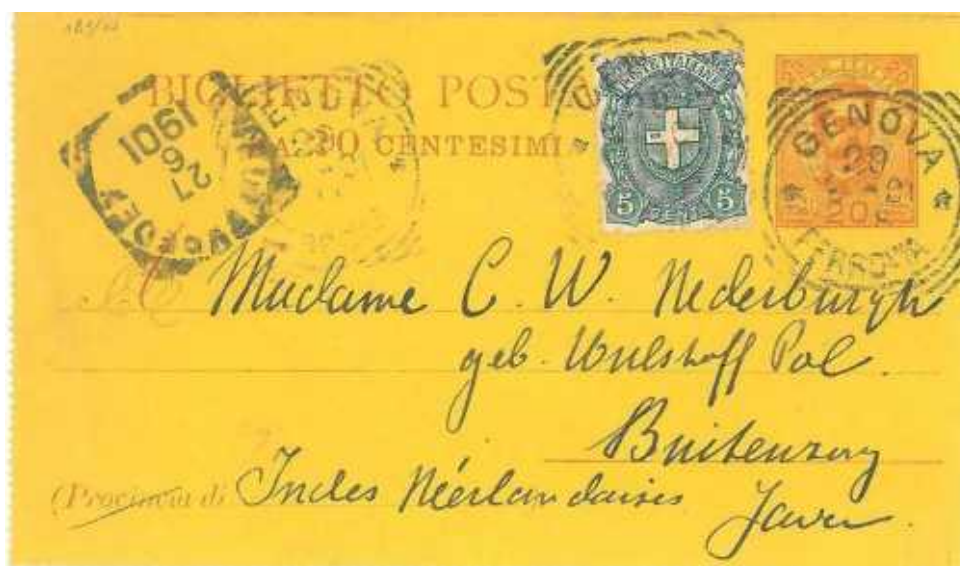 BIGLIETTO POSTALE
DA 20 CENTESIMI
1901
26
27
POSTE ITALIANE
5 CENT. 5
GENOVA
FERROVIA
Madame C. W. Nederburgh
geb. Wulshoff Pol.
Buitenzorg
(Provincia di Indes Néerlandaises
Java.